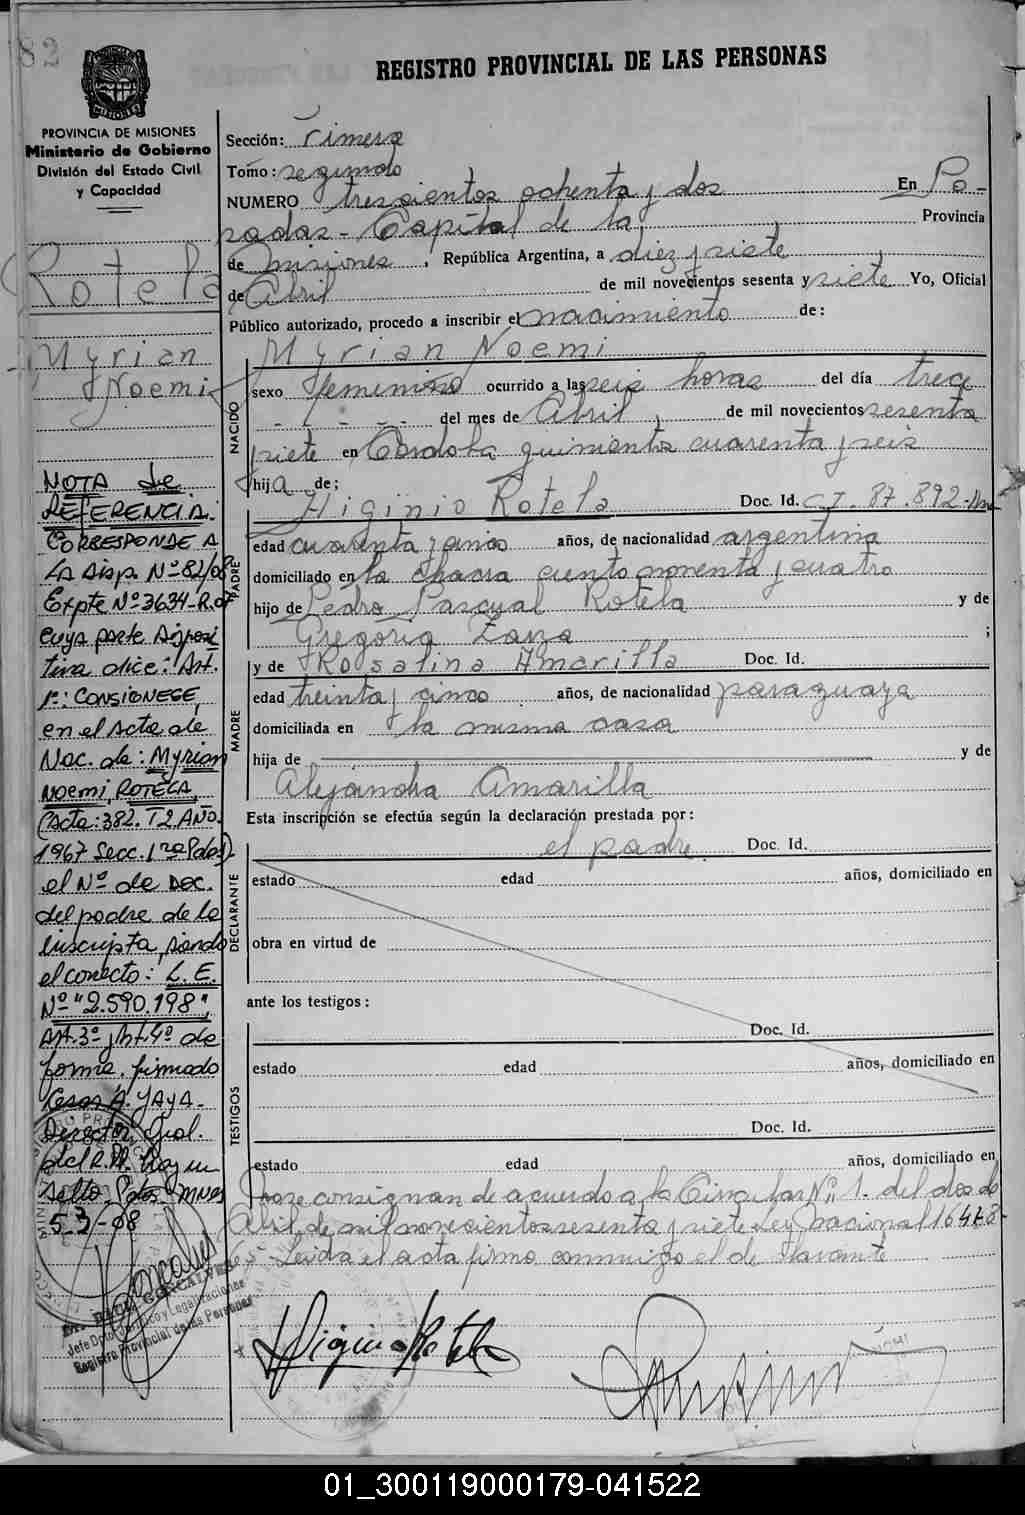 82
REGISTRO PROVINCIAL DE LAS PERSONAS
PROVINCIA DE MISIONES
Ministerio de Gobierno
División del Estado Civil
y Capacidad
Rotela
Myrian
Noemi
NOTA de
REFERENCIA.
CORRESPONDE A
LA Disp. Nº 82/08
Expte Nº 3634-R-07
cuya parte disposi
tiva dice: Art.
1º: CONSIGNESE,
en el acta de
Nac. de: Myrian
Noemi, ROTELA,
(Acta: 382. T 2. AÑO.
1967 Secc. 1ra Pdas).
el Nº de Doc.
del padre de la
inscripta, siendo
el correcto: L.E.
Nº "2.590.198",
Art. 3º y Art. 4º de
forma. firmado
Cesar A. YAYA-
Director Gral.
del R.P.
sello. Pdas. Mnes
5-3-08
RAUL GONCALVES
Jefe Dpto. Jurídico y Legalizaciones
Registro Provincial de las Personas
Sección: Primera
Tomo: segundo
NUMERO trescientos ochenta y dos En Po-
sadas - Capital de la Provincia
de Misiones, República Argentina, a diez y siete
de Abril de mil novecientos sesenta y siete Yo, Oficial
Público autorizado, procedo a inscribir el nacimiento de:
Myrian Noemi
NACIDO
sexo femenino ocurrido a las seis horas del día trece
del mes de Abril, de mil novecientos sesenta
y siete en Córdoba quinientos cuarenta y seis
hija de;
Higinio Rotela Doc. Id. C.I. 87.892-Mnes
PADRE
edad cuarenta y cinco años, de nacionalidad argentina
domiciliado en la chacra ciento noventa y cuatro
hijo de Pedro Pascual Rotela y de
Gregoria Zarza ;
y de Rosalina Amarilla Doc. Id.
MADRE
edad treinta y cinco años, de nacionalidad paraguaya
domiciliada en la misma casa
hija de y de
Alejandra Amarilla
Esta inscripción se efectúa según la declaración prestada por:
el padre Doc. Id.
DECLARANTE
estado edad años, domiciliado en
obra en virtud de
ante los testigos:
Doc. Id.
TESTIGOS
estado edad años, domiciliado en
Doc. Id.
estado edad años, domiciliado en
consignan de acuerdo a la Circular Nº 1. del dos de
Abril de mil novecientos sesenta y siete Ley Nacional 16478-
Leida el acta firma conmigo el declarante
Higinio Rotela
01_300119000179-041522